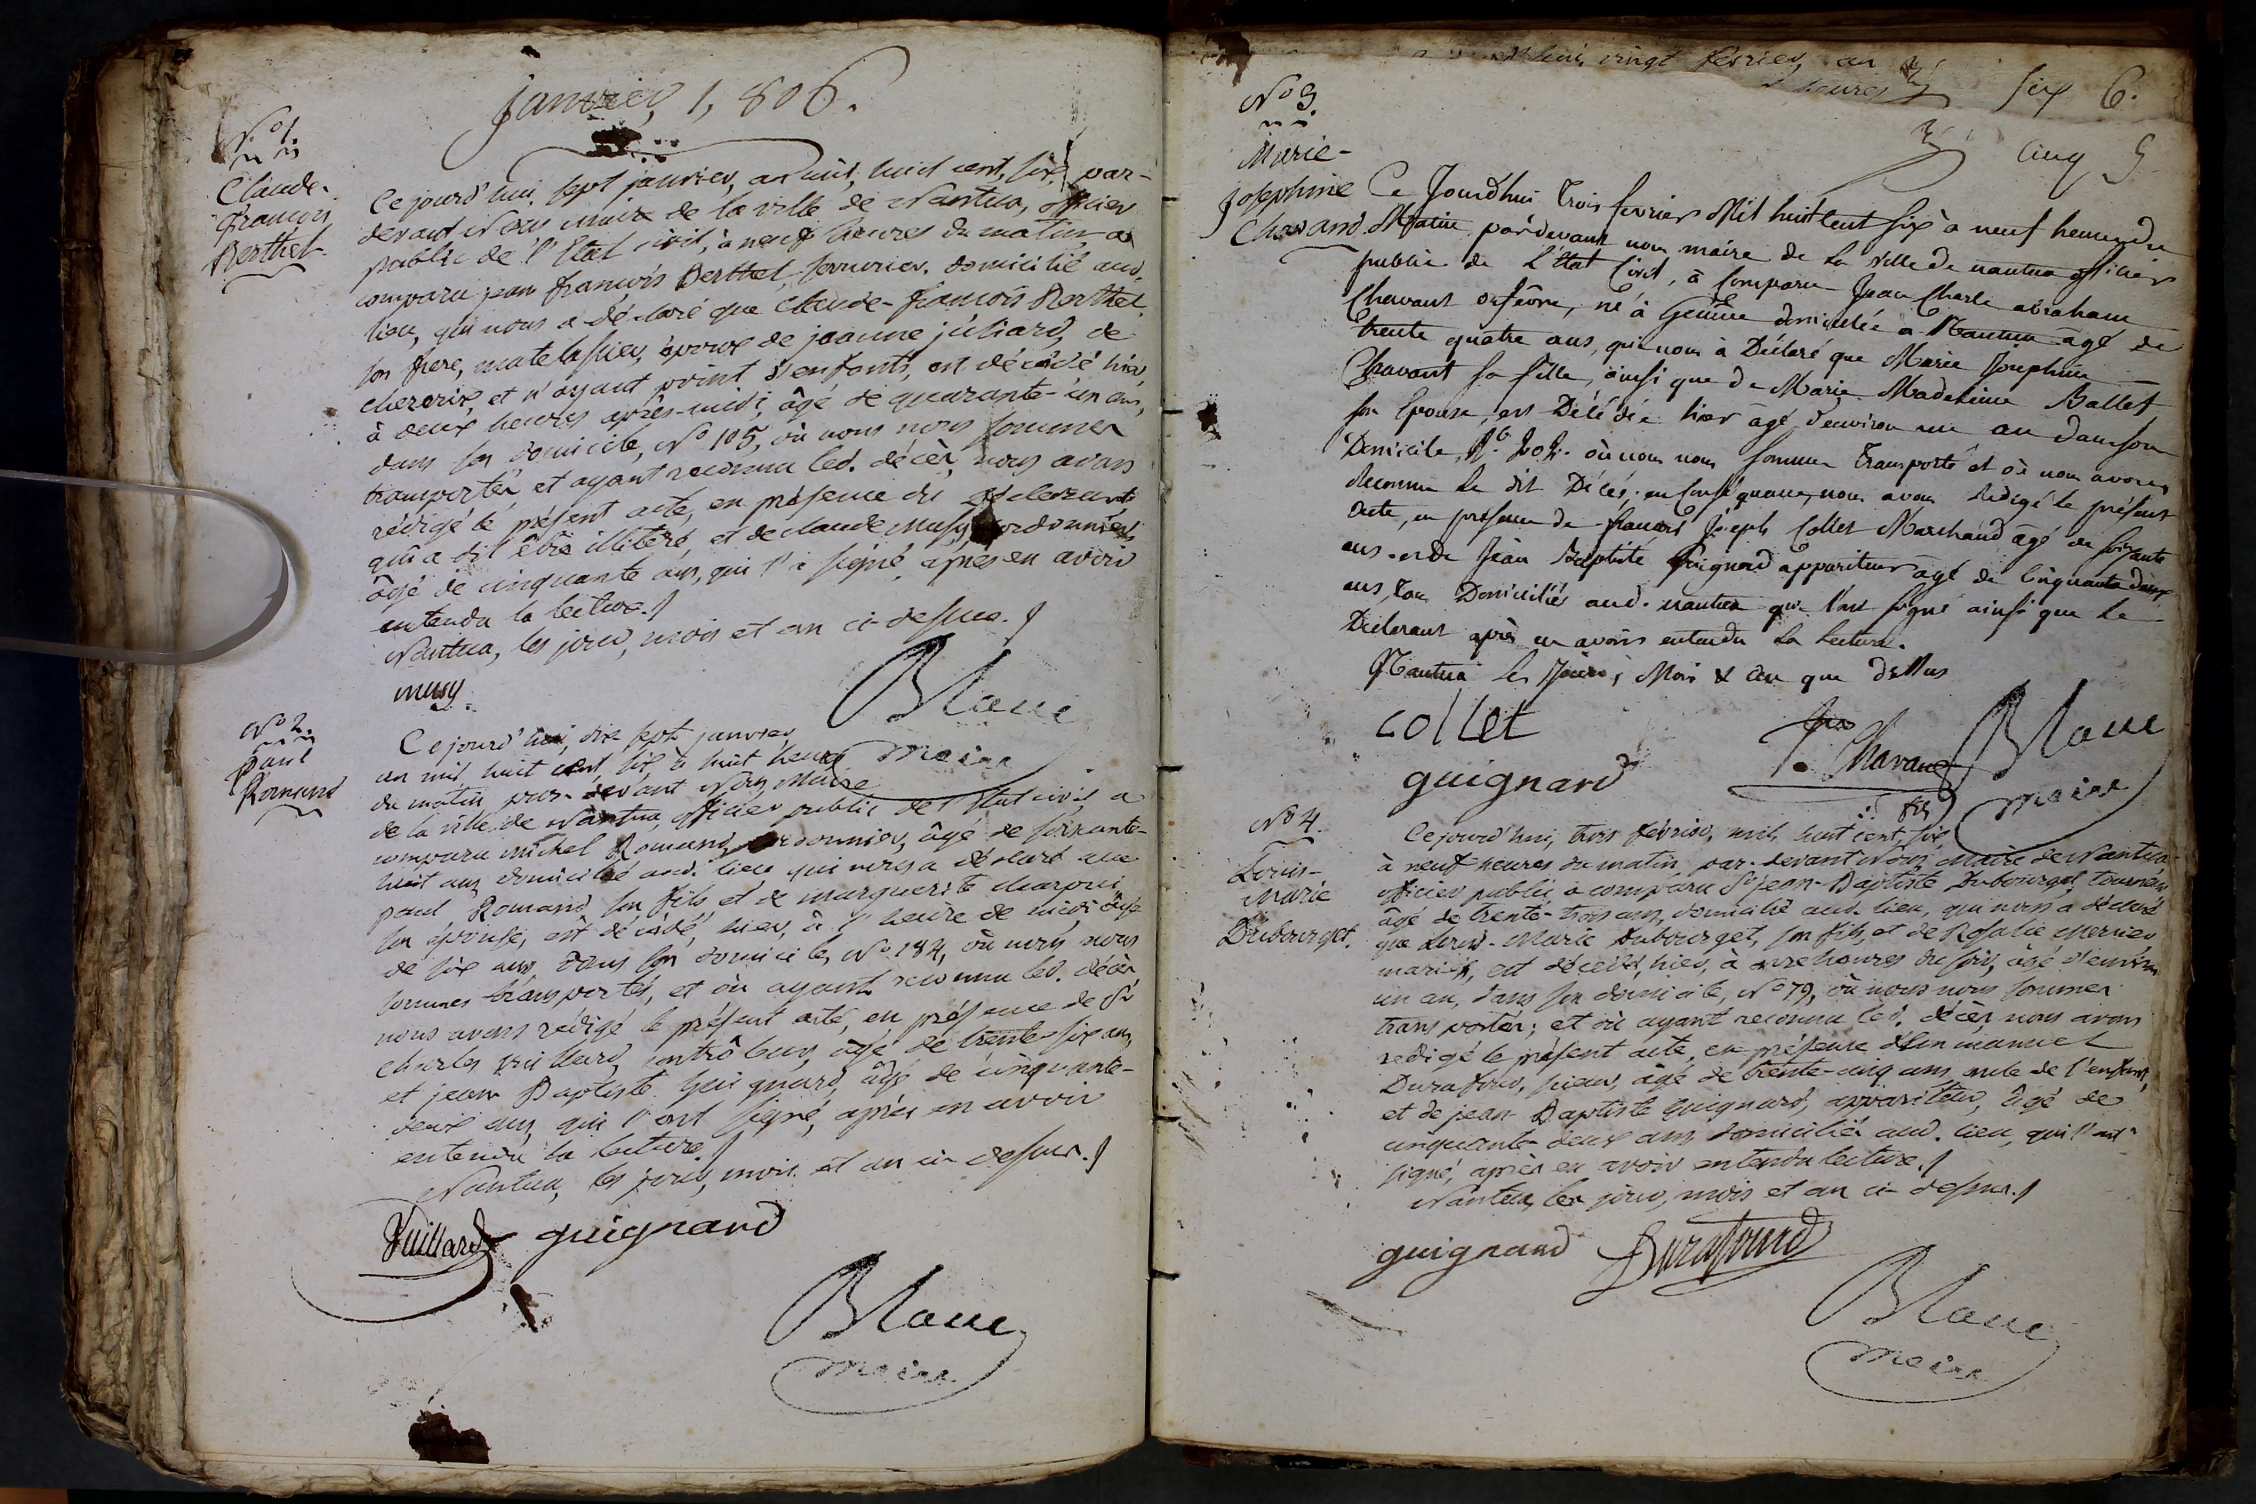 Janvier, 1,806.
N° 1.
Claude-
François
Berthet.
Ce jourd'hui sept janvier, an mil, huit cent, six, par-
devant Nous maire de la ville de Nantua, officier
public de l'Etat civil, à neuf heures du matin, a
comparu jean françois Berthet, serrurier, domicilié aud.
lieu, qui nous a déclaré que Claude-françois Berthet,
son frere, matelassier, époux de jeanne juliard, de
, et n'ayant point d'enfants, est décédé hier,
à deux heures après-midi, âgé de quarante-un ans,
dans son domicile, N° 105, où nous nous sommes
transportés et ayant reconnu led. décès, nous avons
rédigé le présent acte, en présence du déclarant
qui a dit être illitéré, et de claude Musy, cordonnier
âgé de cinquante ans, qui l'a signé, après en avoir
entendu la lecture.
Nantua, les jour, mois et an ci-dessus.
musy
Blanc
maire
N° 2.
paul
Romand
Ce jourd'hui, dix sept janvier,
an mil huit cent, six, à huit heures
du matin, par-devant Nous Maire
de la ville de Nantua, officier public de l'Etat civil, a
comparu michel Romand, cordonnier, âgé de soixante-
huit ans, domicilié aud. lieu qui nous a déclaré que
paul Romand son fils et de marguerite
son épouse, est décédé, hier, à l'heure de midi âgé
de six ans, dans son domicile, N° 184, où nous nous
sommes transportés, et où ayant reconnu led. décès
nous avons rédigé le présent acte, en présence de Sr
charles Vuillard, contrôleur, âgé de trente-six ans,
et jean Baptiste Guignard, âgé de cinquante-
deux ans, qui l'ont signé, après en avoir
entendu la lecture.
Nantua, les jour, mois et an ci-dessus.
Vuillard guignard
Blanc
maire
hui, vingt février, an
heures
six 6.
cinq 5
N° 3.
Marie-
Josephine
Chavand
Ce Jourdhui Trois fevrier Mil huit Cent Six à neuf heures du
Matin, pardevant nous maire de la Ville de nantua officier
public de L'Etat Civil, à Comparu Jean Charle abraham
Chavant orfèvre, né à Genève domicilié à Nantua âgé de
trente quatre ans, qui nous à Déclaré que Marie Josephine
Chavant sa fille, ainsi que de Marie Madeleine Ballet
son Epouse, est Décédée hier âgé d'environ un an dans son
Domicile, N°. où nous nous sommes Transporté et où nous avons
Reconnu le dit Décès; en Conséquence, nous avons Rédigé le présent
acte, en présence de françois Joseph Collet Marchand âgé de soixante
ans. et de Jean Baptiste Guignard appariteur âgé de Cinquante deux
ans, tous Domiciliés aud. nantua qui l'ont signé ainsi que le
Déclarant après en avoir entendu la lecture.
Nantua les Jour, Mois & an que dessus
collet
J. Chavant
fils
Blanc
maire
guignard
N° 4.
Louis-
Marie
Dubourget.
Ce jourd'hui, trois février, mil, huit cent, six,
à neuf heures du matin, par-devant Nous Maire de Nantua
officier public a comparu Sr jean-Baptiste Dubourget, tourneur
âgé de trente-trois ans, domicilié aud. lieu, qui nous a déclaré
que Louis-Marie Dubourget, son fils, et de Rosalie Mercier
mariés, est décédé, hier, à onze heures du soir, âgé d'environ
un an, dans son domicile, N° 79, où nous nous sommes
transportés; et où ayant reconnu led. décès nous avons
redigé le présent acte, en présence d'Emmanuel
Durafour, âgé de trente-cinq ans, oncle de l'enfant,
et de jean Baptiste Guignard, appariteur, âgé de
cinquante-deux ans domiciliés aud. lieu, qui l'ont
signé, après en avoir entendu lecture.
Nantua, les jour, mois et an ci-dessus.
guignard Durafourd
Blanc
maire